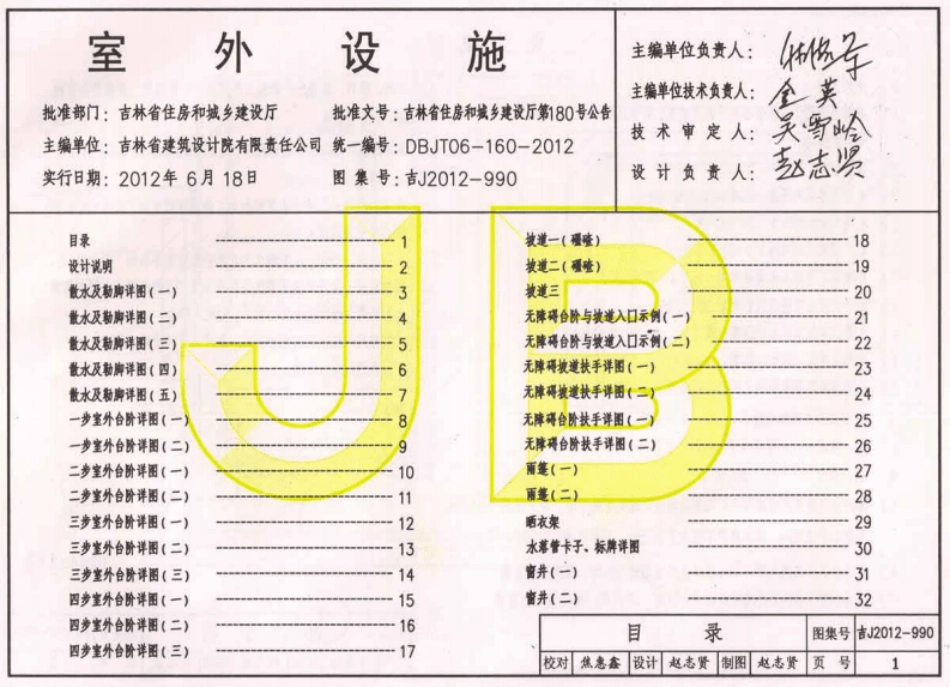 室外设施
批准部门：吉林省住房和城乡建设厅 批准文号：吉林省住房和城乡建设厅第180号公告
主编单位：吉林省建筑设计院有限责任公司 统一编号：DBJT06-160-2012
实行日期：2012年6月18日 图集号：吉J2012-990
主编单位负责人：
主编单位技术负责人：金英
技术审定人：吴雪岭
设计负责人：赵志贤
目录 1
设计说明 2
散水及勒脚详图(一) 3
散水及勒脚详图(二) 4
散水及勒脚详图(三) 5
散水及勒脚详图(四) 6
散水及勒脚详图(五) 7
一步室外台阶详图(一) 8
一步室外台阶详图(二) 9
二步室外台阶详图(一) 10
二步室外台阶详图(二) 11
三步室外台阶详图(一) 12
三步室外台阶详图(二) 13
三步室外台阶详图(三) 14
四步室外台阶详图(一) 15
四步室外台阶详图(二) 16
四步室外台阶详图(三) 17
坡道一(礓磋) 18
坡道二(礓磋) 19
坡道三 20
无障碍台阶与坡道入口示例(一) 21
无障碍台阶与坡道入口示例(二) 22
无障碍坡道扶手详图(一) 23
无障碍坡道扶手详图(二) 24
无障碍台阶扶手详图(一) 25
无障碍台阶扶手详图(二) 26
雨篷(一) 27
雨篷(二) 28
晒衣架 29
水落管卡子、标牌详图 30
窗井(一) 31
窗井(二) 32
目录 图集号 吉J2012-990
校对 焦惠鑫 设计 赵志贤 制图 赵志贤 页号 1